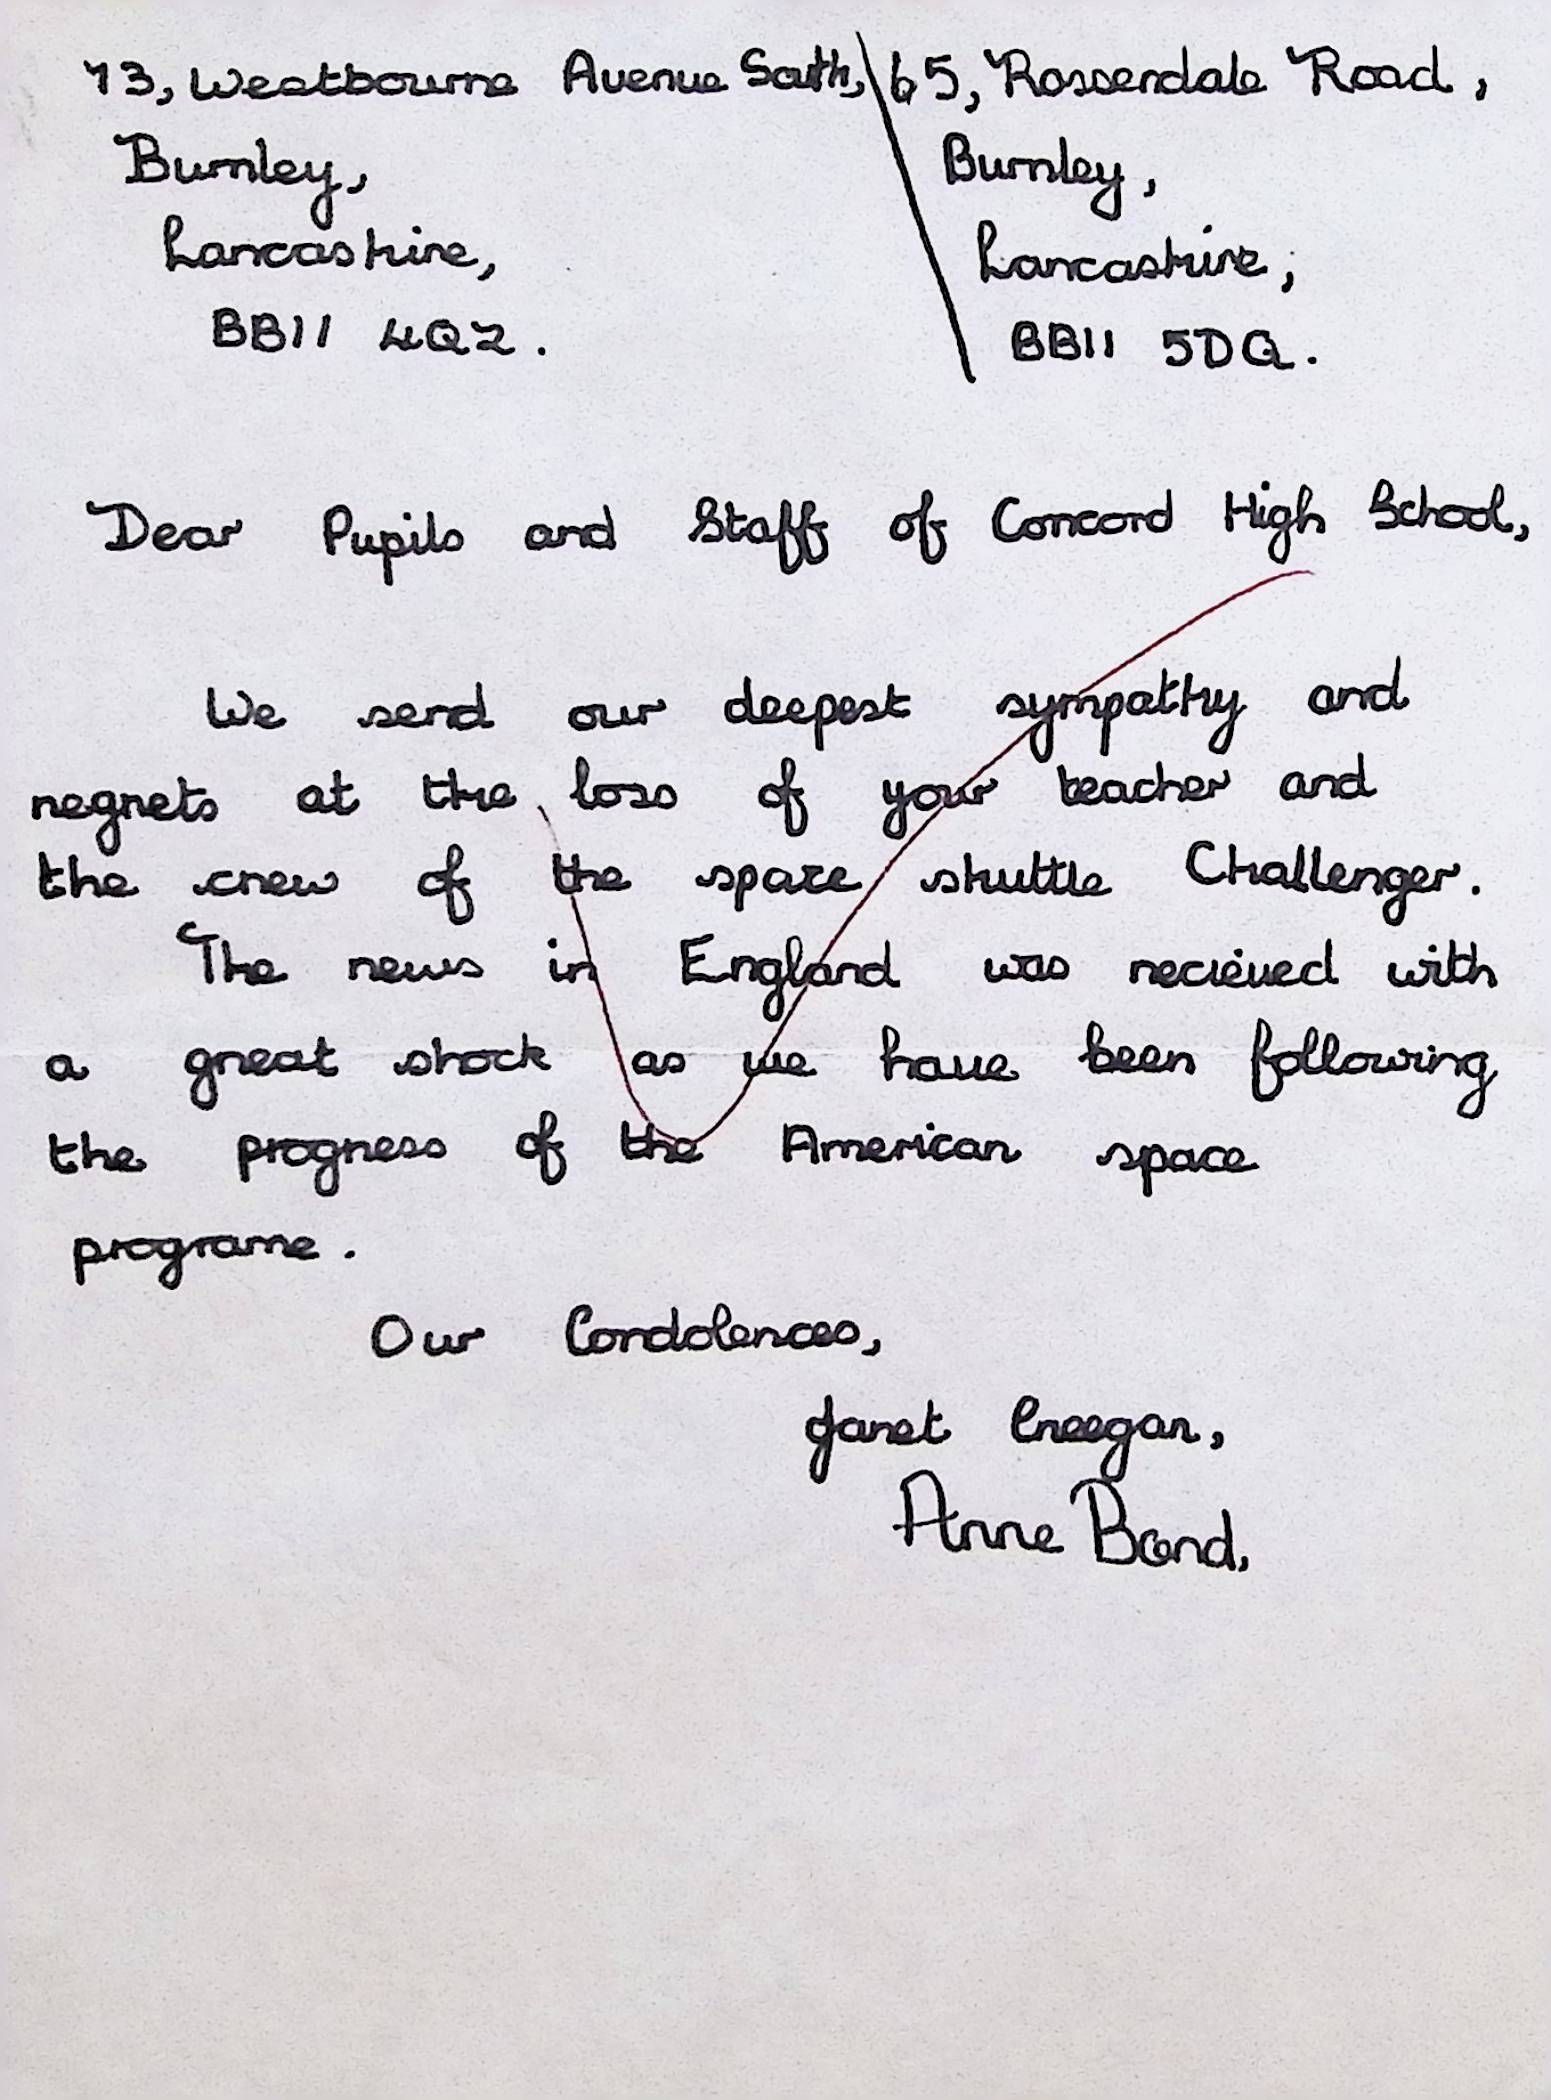 73, Westbourne Avenue South,
Burnley,
Lancashire,
BB11 4QZ.
65, Rossendale Road,
Burnley,
Lancashire,
BB11 5DQ.
Dear Pupils and Staff of Concord High School,
We send our deepest sympathy and
regrets at the loss of your teacher and
the crew of the space shuttle Challenger.
The news in England was recieved with
a great shock as we have been following
the progress of the American space
programe.
Our Condolences,
Janet Creegan,
Anne Bond,